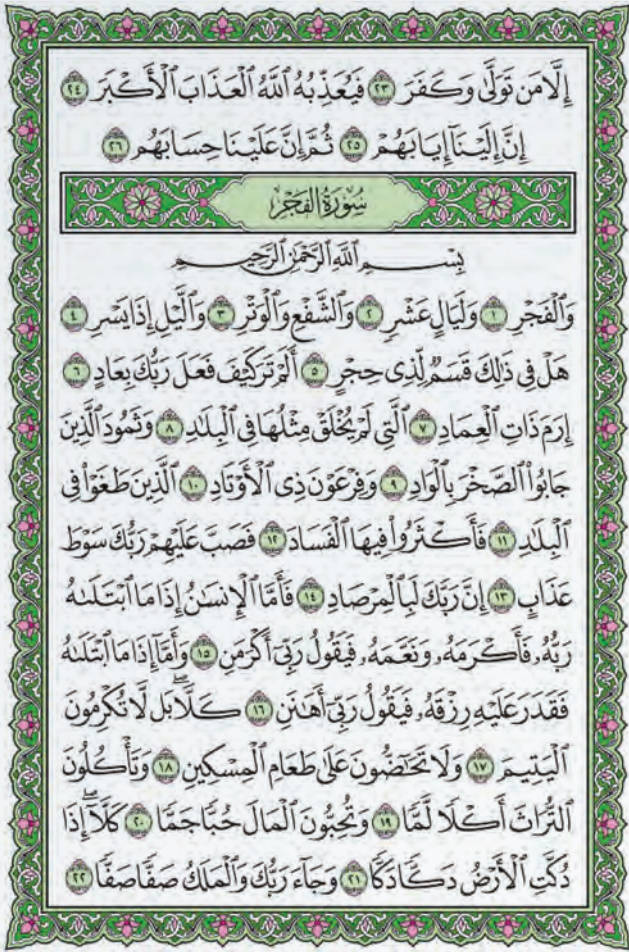 إِلَّا مَن تَوَلَّىٰ وَكَفَرَ ٢٣ فَيُعَذِّبُهُ ٱللَّهُ ٱلْعَذَابَ ٱلْأَكْبَرَ ٢٤
إِنَّ إِلَيْنَآ إِيَابَهُمْ ٢٥ ثُمَّ إِنَّ عَلَيْنَا حِسَابَهُم ٢٦
سُورَةُ الفَجْرِ
بِسْمِ ٱللَّهِ ٱلرَّحْمَٰنِ ٱلرَّحِيمِ
وَٱلْفَجْرِ ١ وَلَيَالٍ عَشْرٍ ٢ وَٱلشَّفْعِ وَٱلْوَتْرِ ٣ وَٱلَّيْلِ إِذَا يَسْرِ ٤
هَلْ فِى ذَٰلِكَ قَسَمٌ لِّذِى حِجْرٍ ٥ أَلَمْ تَرَ كَيْفَ فَعَلَ رَبُّكَ بِعَادٍ ٦
إِرَمَ ذَاتِ ٱلْعِمَادِ ٧ ٱلَّتِى لَمْ يُخْلَقْ مِثْلُهَا فِى ٱلْبِلَٰدِ ٨ وَثَمُودَ ٱلَّذِينَ
جَابُوا۟ ٱلصَّخْرَ بِٱلْوَادِ ٩ وَفِرْعَوْنَ ذِى ٱلْأَوْتَادِ ١٠ ٱلَّذِينَ طَغَوْا۟ فِى
ٱلْبِلَٰدِ ١١ فَأَكْثَرُوا۟ فِيهَا ٱلْفَسَادَ ١٢ فَصَبَّ عَلَيْهِمْ رَبُّكَ سَوْطَ
عَذَابٍ ١٣ إِنَّ رَبَّكَ لَبِٱلْمِرْصَادِ ١٤ فَأَمَّا ٱلْإِنسَٰنُ إِذَا مَا ٱبْتَلَىٰهُ
رَبُّهُۥ فَأَكْرَمَهُۥ وَنَعَّمَهُۥ فَيَقُولُ رَبِّىٓ أَكْرَمَنِ ١٥ وَأَمَّآ إِذَا مَا ٱبْتَلَىٰهُ
فَقَدَرَ عَلَيْهِ رِزْقَهُۥ فَيَقُولُ رَبِّىٓ أَهَٰنَنِ ١٦ كَلَّاۖ بَل لَّا تُكْرِمُونَ
ٱلْيَتِيمَ ١٧ وَلَا تَحَٰٓضُّونَ عَلَىٰ طَعَامِ ٱلْمِسْكِينِ ١٨ وَتَأْكُلُونَ
ٱلتُّرَاثَ أَكْلًا لَّمًّا ١٩ وَتُحِبُّونَ ٱلْمَالَ حُبًّا جَمًّا ٢٠ كَلَّآۖ إِذَا
دُكَّتِ ٱلْأَرْضُ دَكًّا دَكًّا ٢١ وَجَآءَ رَبُّكَ وَٱلْمَلَكُ صَفًّا صَفًّا ٢٢